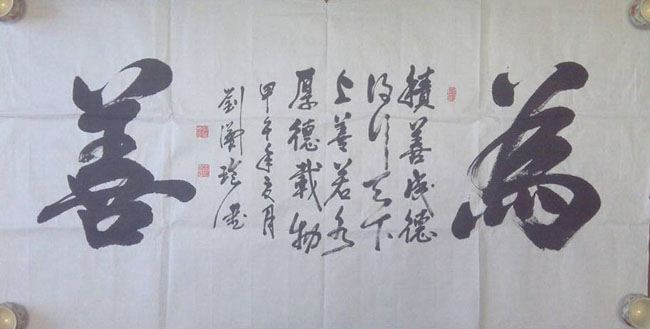 為
積善成德
行天下
上善若水
厚德載物
甲午年亥月
劉蘭
善